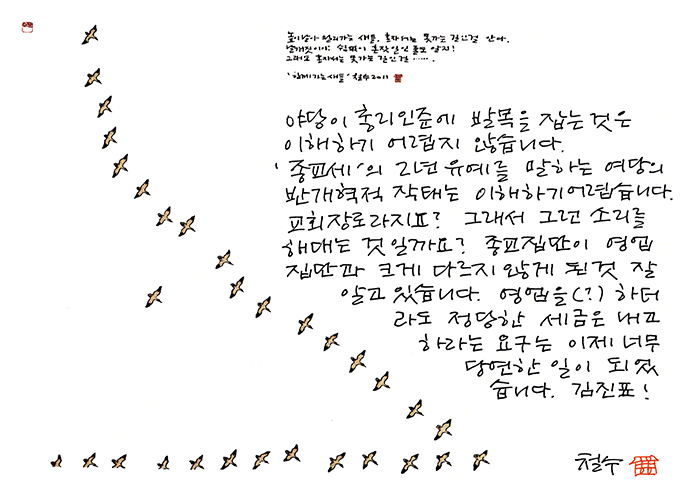 높이 날아 멀리 가는 새들. 혼자서는 못가는 길인걸 안다.
날개짓이야 원래 혼자 일인 줄도 알지!
그래도 혼자서는 못가는 길인걸 …….
'함께 가는 새들' 철수 2011
야당이 총리인준에 발목을 잡는 것은
이해하기 어렵지 않습니다.
'종교세'의 2년 유예를 말하는 여당의
반개혁적 작태는 이해하기 어렵습니다.
교회장로라지요? 그래서 그런 소리를
해대는 것일까요? 종교집단이 영업
집단과 크게 다르지 않게 된 것 잘
알고 있습니다. 영업을(?) 하더
라도 정당한 세금은 내고
하라는 요구는 이제 너무
당연한 일이 되었
습니다. 김진표!
철수